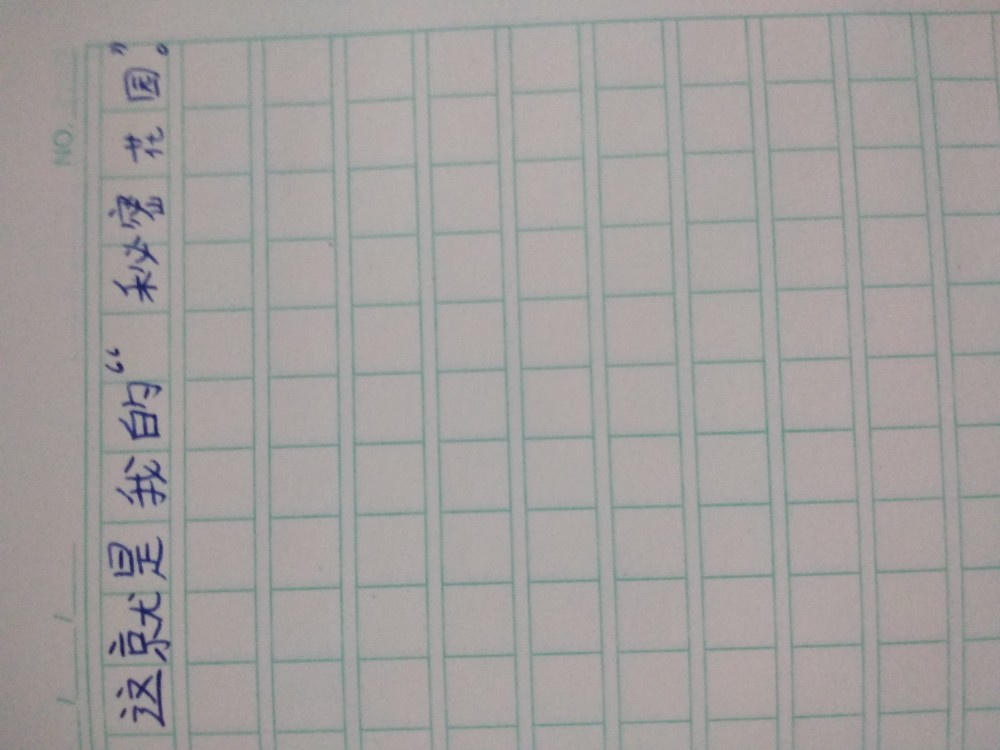 NO.
这就是我的“秘密花园”。